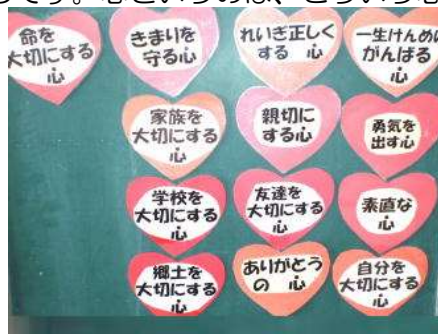 です。心というのは、どういう心
命を
大切にする
心
きまりを
守る心
れいぎ正しく
する 心
一生けんめい
がんばる
心
家族を
大切にする
心
親切に
する心
勇気を
出す心
学校を
大切にする
心
友達を
大切にする
心
素直な
心
郷土を
大切にする
心
ありがとう
の 心
自分を
大切にする
心